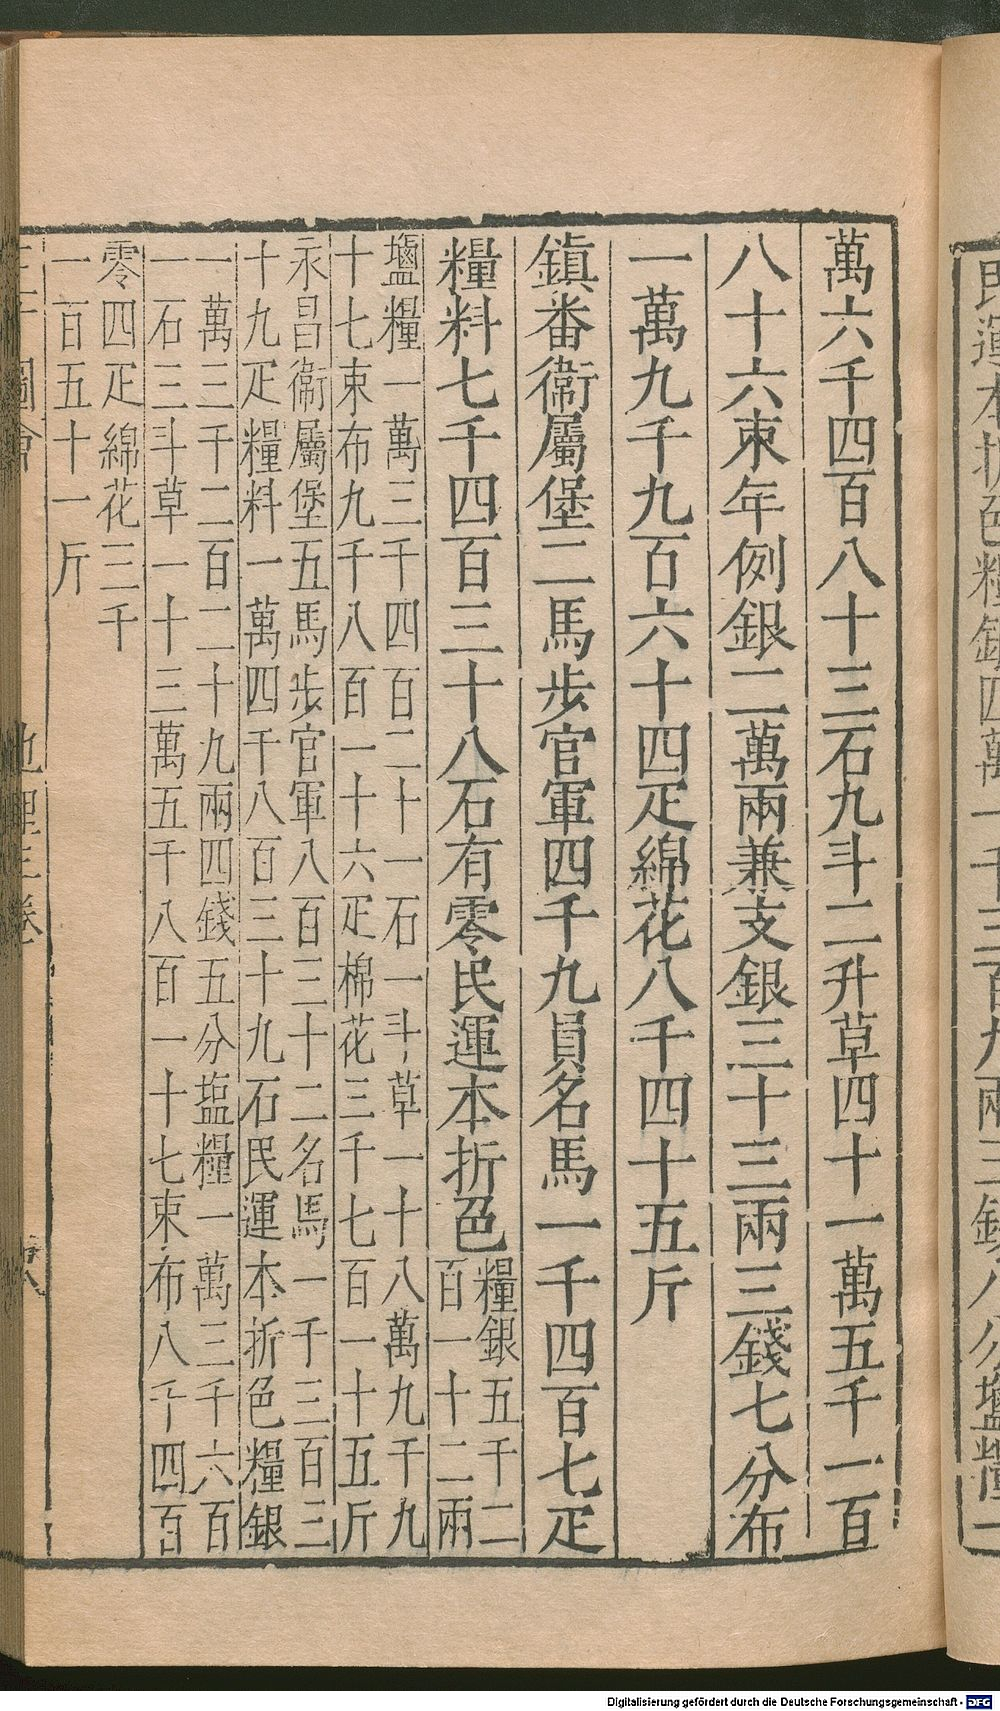 民運本折色糧銀四萬一千三百九兩三錢八分塩糧一
萬六千四百八十三石九斗二升草四十一萬五千一百
八十六束年例銀二萬兩兼支銀三十三兩三錢七分布
一萬九千九百六十四疋綿花八千四十五斤
鎮番衛屬堡二馬步官軍四千九員名馬一千四百七疋
糧料七千四百三十八石有零民運本折色
糧銀五千二
百一十二兩
鹽糧一萬三千四百二十一石一斗草一十八萬九千九
十七束布九千八百一十六疋棉花三千七百一十五斤
永昌衛屬堡五馬步官軍八百三十二名馬一千三百三
十九疋糧料一萬四千八百三十九石民運本折色糧銀
一萬三千二百二十九兩四錢五分塩糧一萬三千六百
一石三斗草一十三萬五千八百一十七束布八千四百
零四疋綿花三千
一百五十一斤
圖會
地理三卷
Digitalisierung gefördert durch die Deutsche Forschungsgemeinschaft - DFG